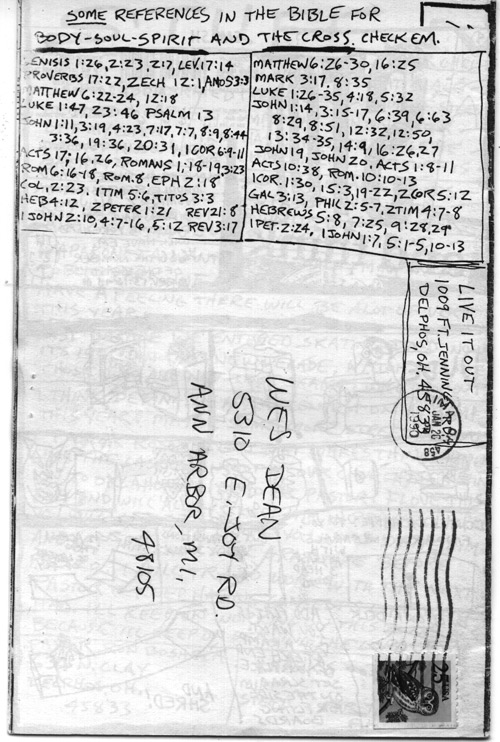 SOME REFERENCES IN THE BIBLE FOR
BODY-SOUL-SPIRIT AND THE CROSS. CHECK EM.
GENISIS 1:26, 2:23, 2:7, LEV. 17:14
PROVERBS 17:22, ZECH 12:1, AMOS 3:3
MATTHEW 6:22-24, 12:18
LUKE 1:47, 23:46 PSALM 13
JOHN 1:11, 3:19, 4:23, 7:17, 7:7, 8:9, 8:44
3:36, 19:36, 20:31, 1COR 6:9-11
ACTS 17:16,26, ROMANS 1:18-19, 3:23
ROM 6:16-18, ROM. 8, EPH 2:18
COL. 2:23, 1TIM 5:6, TITOS 3:3
HEB 4:12, 2PETER 1:21 REV 21:8
1JOHN 2:10, 4:7-16, 5:12 REV 3:17
MATTHEW 6:26-30, 16:25
MARK 3:17, 8:35
LUKE 1:26-35, 4:18, 5:32
JOHN 1:14, 3:15-17, 6:39, 6:63
8:29, 8:51, 12:32, 12:50,
13:34-35, 14:9, 16:26,27
JOHN 19, JOHN 20, ACTS 1:8-11
ACTS 10:38, ROM. 10:10-13
1COR. 1:30, 15:3, 19-22, 2COR 5:12
GAL 3:13, PHIL 2:5-7, 2TIM 4:7-8
HEBREWS 5:8, 7:25, 9:28,29
1PET. 2:24, 1JOHN 1:7, 5:1-5, 10-13
LIVE IT OUT
1009 FT. JENNINGS RD.
DELPHOS, OH. 45833
LIMA
JAN 26
1990
458
WES DEAN
5310 E. JOY RD.
ANN ARBOR, MI,
48105
25
USA